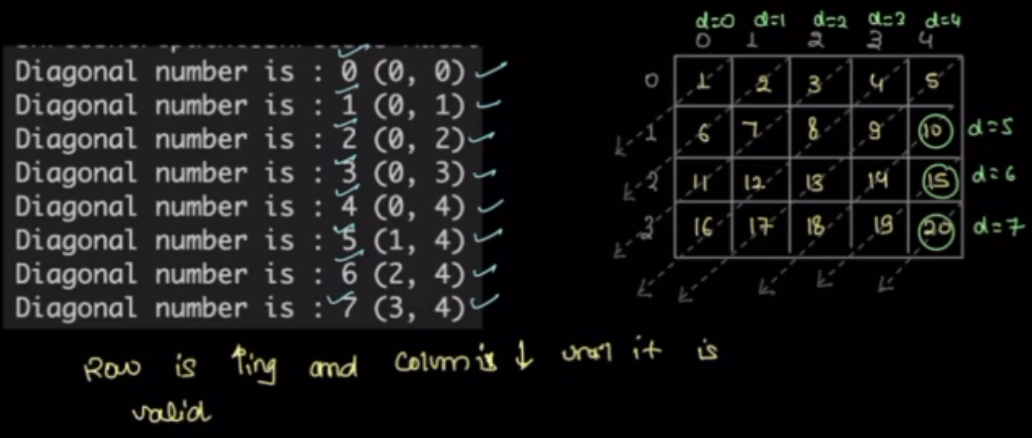 Diagonal number is : 0 (0, 0)
Diagonal number is : 1 (0, 1)
Diagonal number is : 2 (0, 2)
Diagonal number is : 3 (0, 3)
Diagonal number is : 4 (0, 4)
Diagonal number is : 5 (1, 4)
Diagonal number is : 6 (2, 4)
Diagonal number is : 7 (3, 4)
d=0 d=1 d=2 d=3 d=4
0 1 2 3 4
0 1 2 3 4 5
1 6 7 8 9 10 d=5
2 11 12 13 14 15 d=6
3 16 17 18 19 20 d=7
Row is ↑ing and Colum is ↓ it is
valid